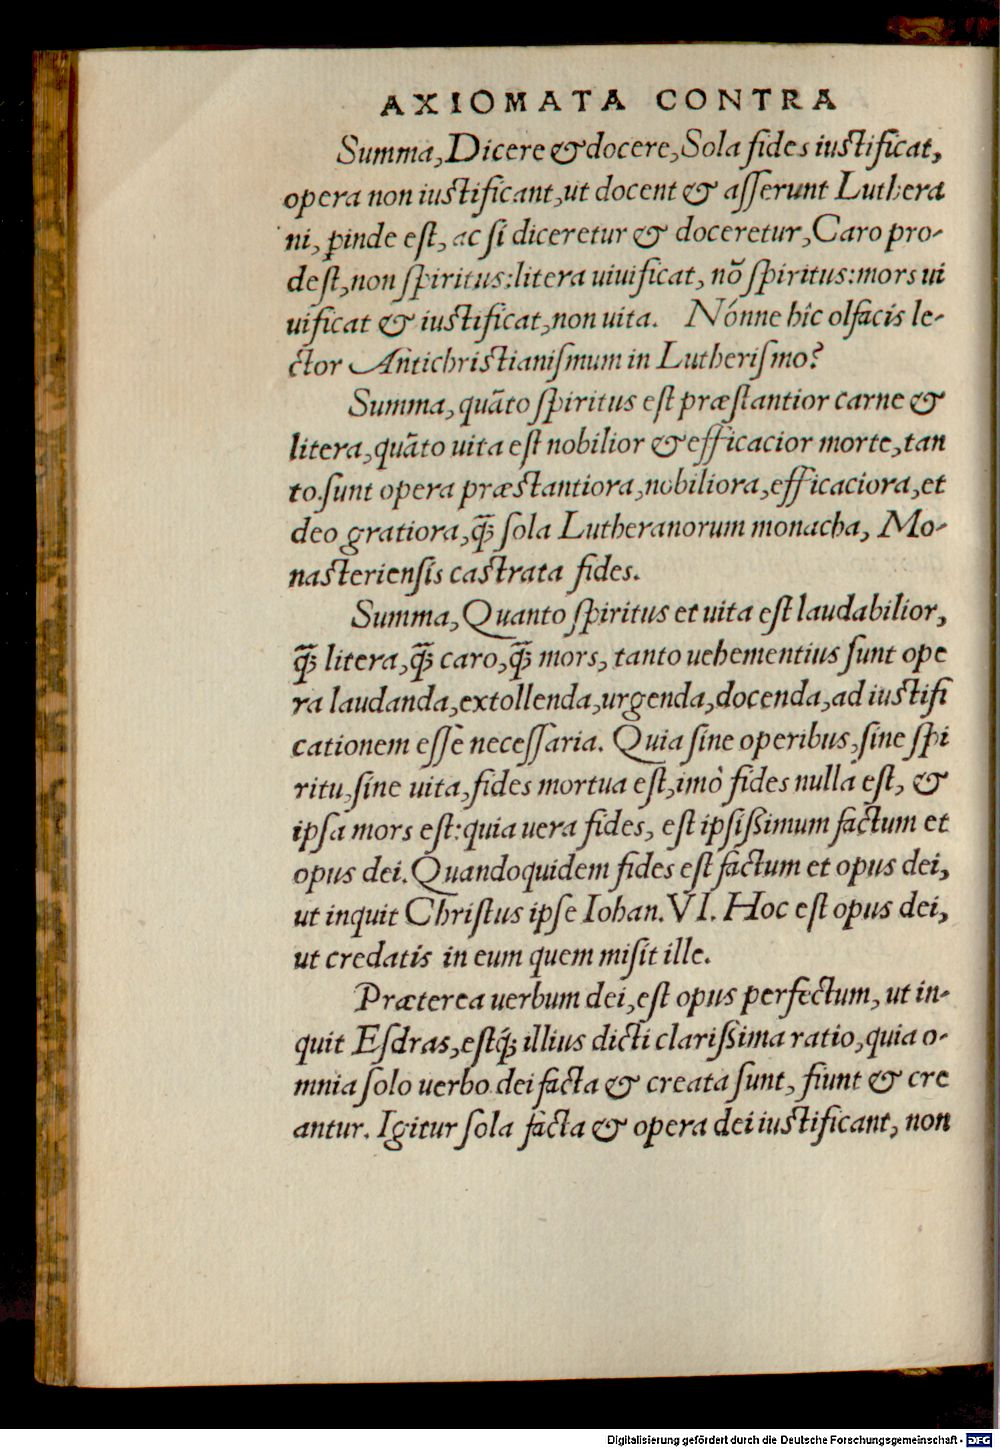 AXIOMATA CONTRA
Summa, Dicere & docere, Sola fides iustificat,
opera non iustificant, ut docent & asserunt Luthera
ni, ꝑinde est, ac si diceretur & doceretur, Caro pro-
dest, non spiritus: litera uiuificat, nõ spiritus: mors ui
uificat & iustificat, non uita. Nónne hîc olfacis le-
ctor Antichristianismum in Lutherismo?
Summa, quãto spiritus est præstantior carne &
litera, quãto uita est nobilior & efficacior morte, tan
to. sunt opera præstantiora, nobiliora, efficaciora, et
deo gratiora, q̃ꝫ sola Lutheranorum monacha, Mo-
nasteriensis castrata fides.
Summa, Quanto spiritus et uita est laudabilior,
q̃ꝫ litera, q̃ꝫ caro, q̃ꝫ mors, tanto uehementius sunt ope
ra laudanda, extollenda, urgenda, docenda, ad iustifi
cationem esse necessaria. Quia sine operibus, sine spi
ritu, sine uita, fides mortua est, imò fides nulla est, &
ipsa mors est: quia uera fides, est ipsissimum factum et
opus dei. Quandoquidem fides est factum et opus dei,
ut inquit Christus ipse Iohan. VI. Hoc est opus dei,
ut credatis in eum quem misit ille.
Præterea uerbum dei, est opus perfectum, ut in-
quit Esdras, estq́ꝫ illius dicti clarissima ratio, quia o-
mnia solo uerbo dei facta & creata sunt, fiunt & cre
antur. Igitur sola facta & opera dei iustificant, non
Digitalisierung gefördert durch die Deutsche Forschungsgemeinschaft - DFG